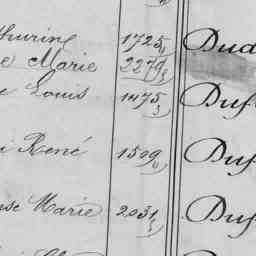 thurine 1725 Dud
e Marie 2279
e Louis 1475 Duf
René 1509 Duf
se Marie 2031 Duf